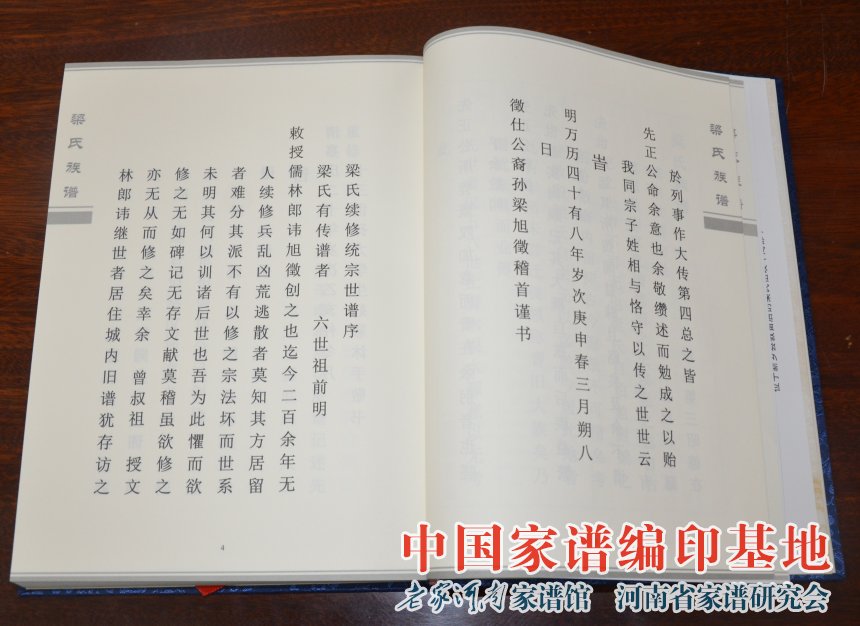 梁氏族谱
於列事作大传第四总之皆
先正公命余意也余敬缵述而勉成之以贻
我同宗子姓相与恪守以传之世世云
旹
明万历四十有八年岁次庚申春三月朔八
日
徵仕公裔孙梁旭徵稽首谨书
梁氏续修统宗世谱序
梁氏有传谱者 六世祖前明
敕授儒林郎讳旭徵创之也迄今二百余年无
人续修兵乱凶荒逃散者莫知其方居留
者难分其派不有以修之宗法坏而世系
未明其何以训诸后世也吾为此惧而欲
修之无如碑记无存文献莫稽虽欲修之
亦无从而修之矣幸余 曾叔祖 授文
林郎讳继世者居住城内旧谱犹存访之
梁氏族谱
4
中国家谱编印基地
老家河南家谱馆 河南省家谱研究会